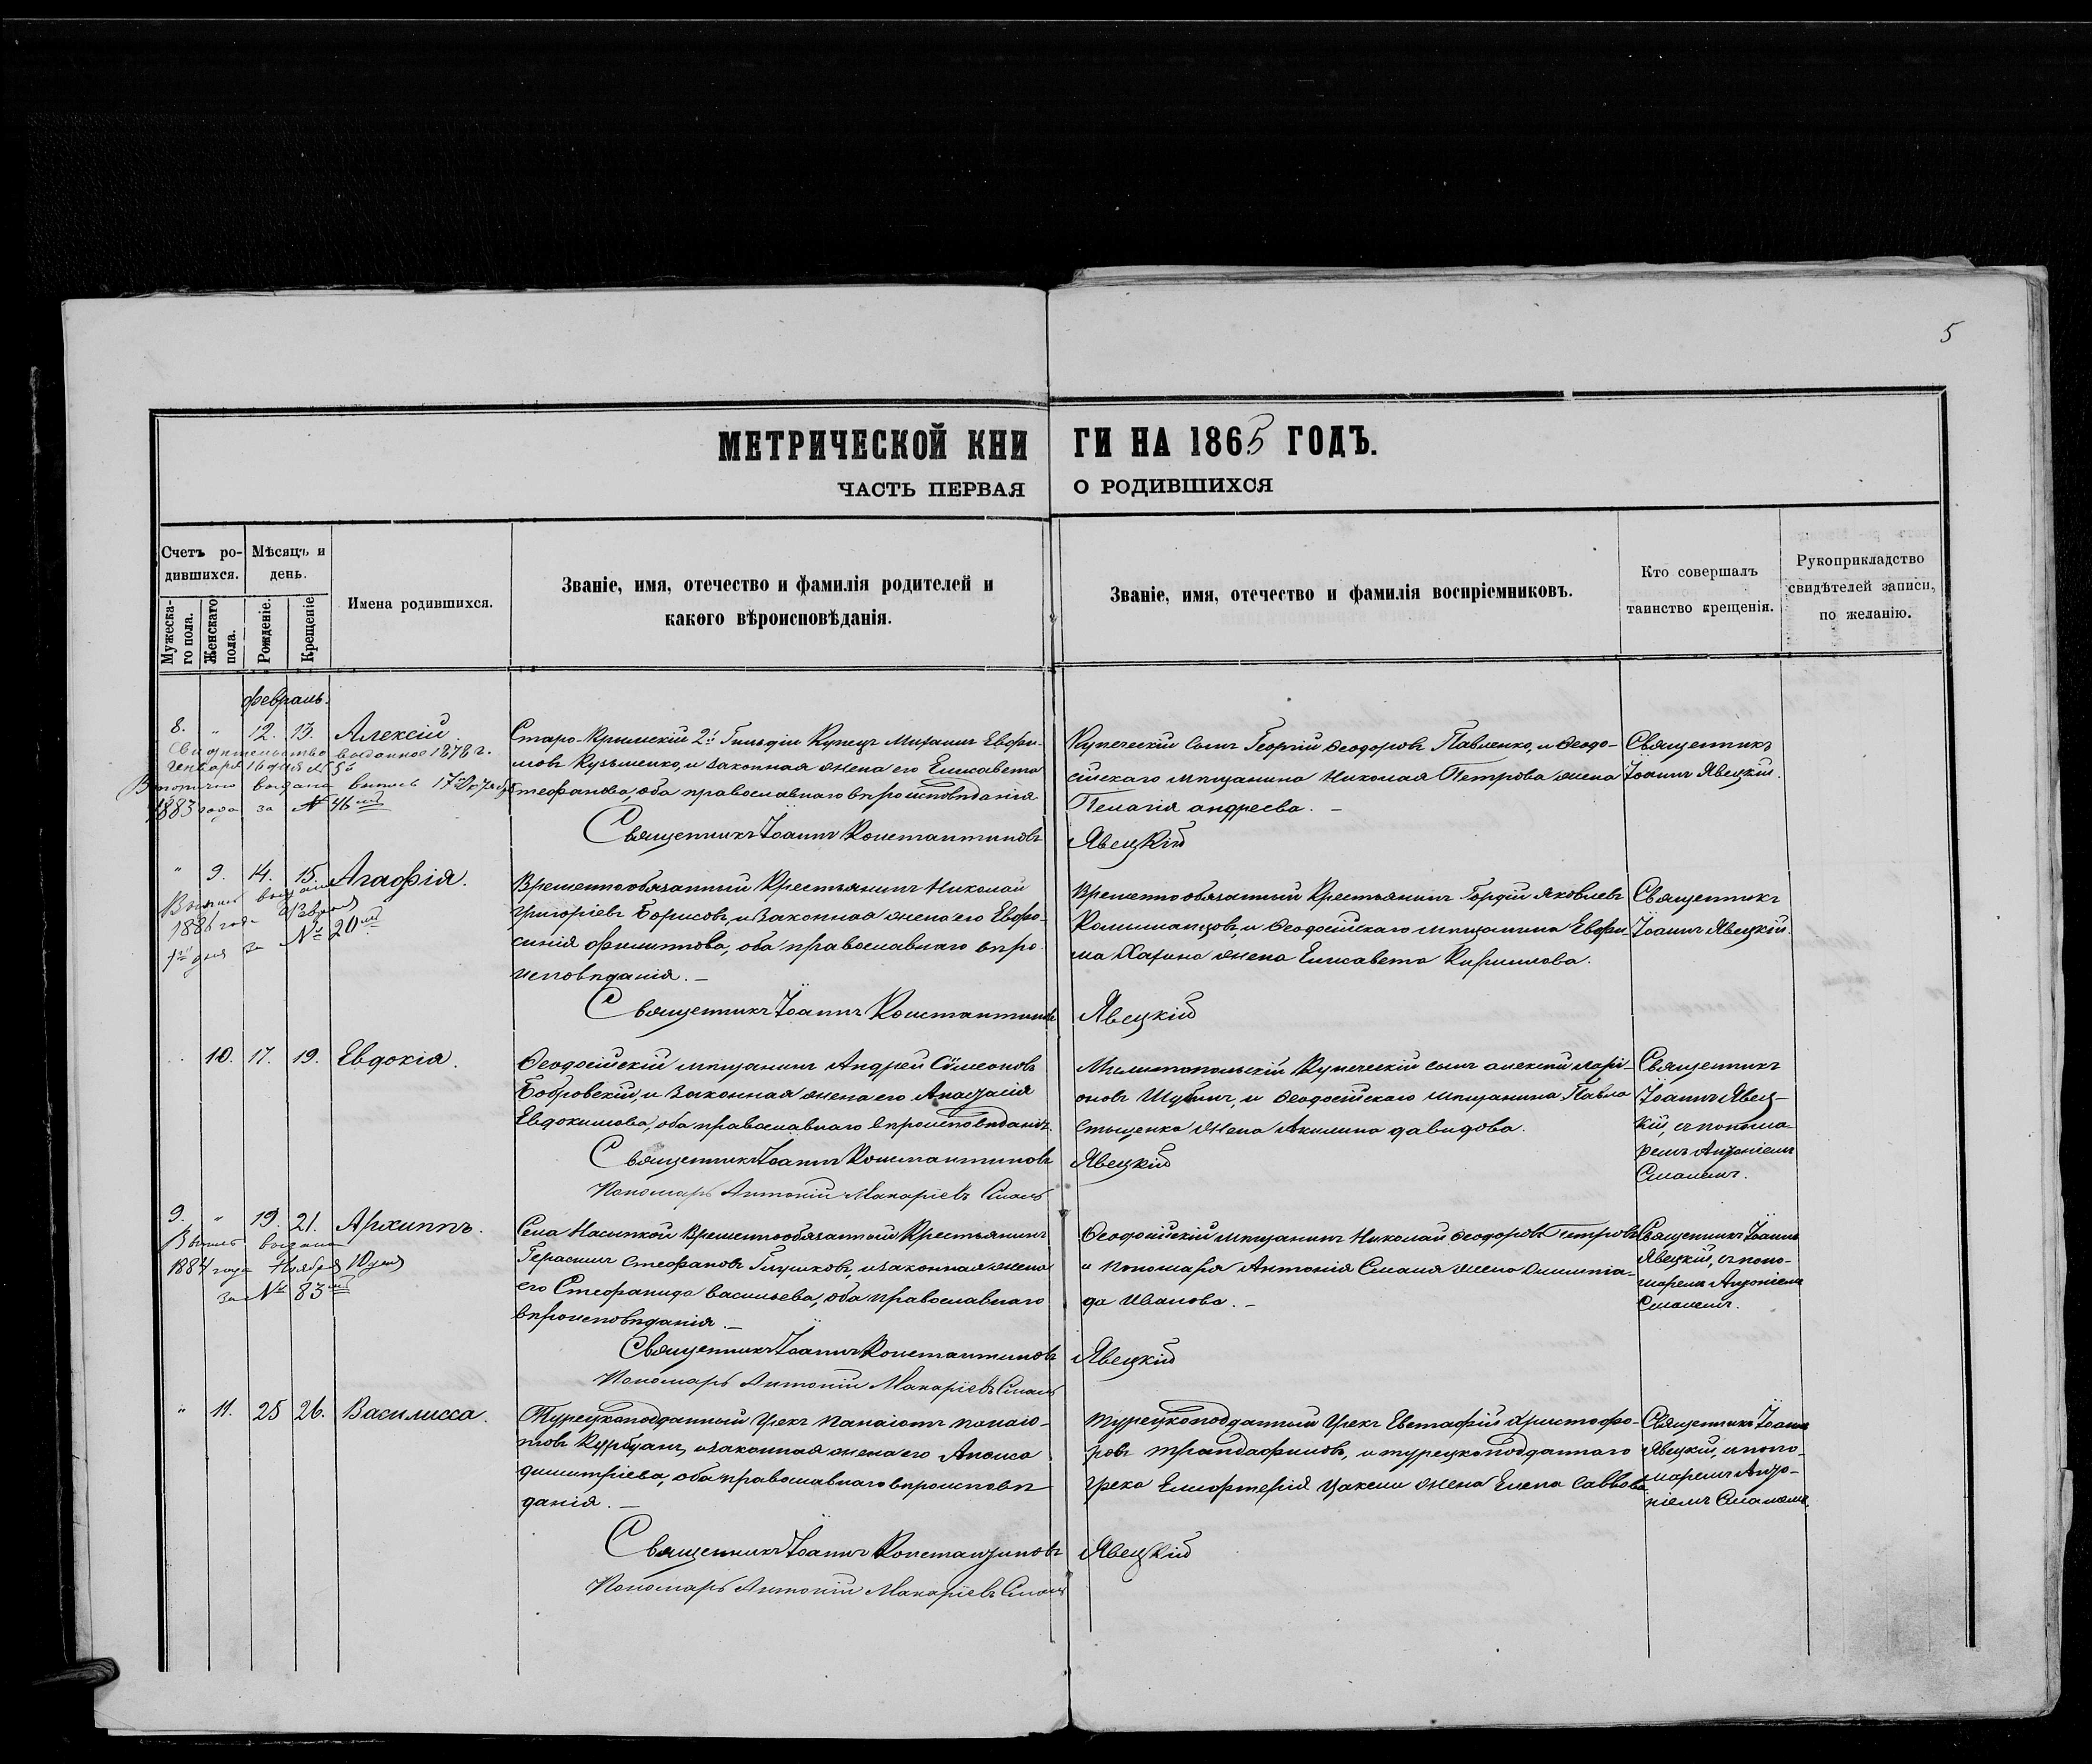 5
МЕТРИЧЕСКОЙ КНИ ГИ НА 1865 ГОДЪ.
ЧАСТЬ ПЕРВАЯ О РОДИВШИХСЯ
Счетъ ро-
дившихся.
Мѣсяцъ и
день.
Мужеска-
го пола.
Женскаго
пола.
Рожденіе.
Крещеніе
Имена родившихся.
Званіе, имя, отечество и фамилія родителей и
какого вѣроисповѣданія.
Званіе, имя, отечество и фамилія воспріемниковъ.
Кто совершалъ
таинство крещенія.
Рукоприкладство
свидѣтелей записи,
по желанію.
февраль.
8. " 12. 13. Алексій.
Свидѣтельство выданное 1878 г.
генваря 16 дня №
Вторично выдана выпись 17
1883 года за № 46
Старо-Крымскій 2й Гильдіи Купецъ Михаилъ Евфи-
мовъ Кузьменко, и законная жена его Елисавета
Стефанова, оба православнаго вѣроисповѣданія
Священникъ Іоаннъ Константиновъ
Явецкій
Купеческій сынъ Георгій Ѳеодоровъ Павленко, и Ѳеодо-
сійскаго мѣщанина Николая Петрова жена
Пелагія андреева. —
Священникъ
Іоаннъ Явецкій.
" 9. 14. 15. Агафія.
Выпись выдана
1886 года Февраля
1го дня за № 20
Временнообязанный Крестьянинъ Николай
григоріевъ Борисовъ, и законная жена его Евфро-
синія филиппова, оба православнаго вѣро
исповѣданія. —
Священникъ Іоаннъ Константиновъ
Явецкій
Временнообязанный Крестьянинъ Гордій Яковлевъ
и Ѳеодосійскаго мѣщанина Евфи-
ма жена Елисавета Кириллова.
Священникъ
Іоаннъ Явецкій.
10. 17. 19. Евдокія.
Ѳеодосійскій мѣщанинъ Андрей Сѷмеоновъ
Бобровскій, и законная жена его Анастасія
Евдокимова, оба православнаго вѣроисповѣданія.
Священникъ Іоаннъ Константиновъ
Явецкій
Пономарь Антоній Макаріевъ
Мелитопольскій Купеческій сынъ алексій ларі-
оновъ Шубинъ, и Ѳеодосійскаго мѣщанина Павла
жена Акилина давидова.
Священникъ
Іоаннъ Явец-
кій, съ понома
ремъ Антоніемъ
9. " 19. 21. Архиппъ.
Выпись выдана
1884 года Ноября 10 дня
за № 83
Села Насыпкой Временнообязанной Крестьянинъ
Герасимъ Стефановъ Глушковъ, и законная жена
его Стефанида васильева, оба православнаго
вѣроисповѣданія. —
Священникъ Іоаннъ Константиновъ
Явецкій
Пономарь Антоній Макаріевъ
Ѳеодосійскій мѣщанинъ Николай Ѳеодоровъ Петровъ
и Пономаря Антонія жена Олимпіа-
да Иванова. —
Священникъ Іоаннъ
Явецкій, съ поно-
маремъ Антоніемъ
" 11. 25 26. Василисса.
Турецкоподданный Грекъ Панаіотъ панаіо-
товъ и законная жена его
димитріева, оба православнаго вѣроисповѣ
данія. —
Священникъ Іоаннъ Константиновъ
Явецкій
Пономарь Антоній Макаріевъ
Турецкоподданный Грекъ Евстафій Христофо-
ровъ трандафиловъ, и турецкоподданнаго
Грека Елефтерія жена Елена Саввова
Священникъ Іоаннъ
Явецкій, съ поно-
маремъ Анто-
ніемъ